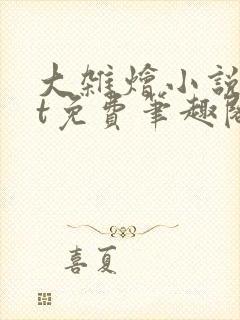 大雑燴小說
t免費筆趣閣
喜夏